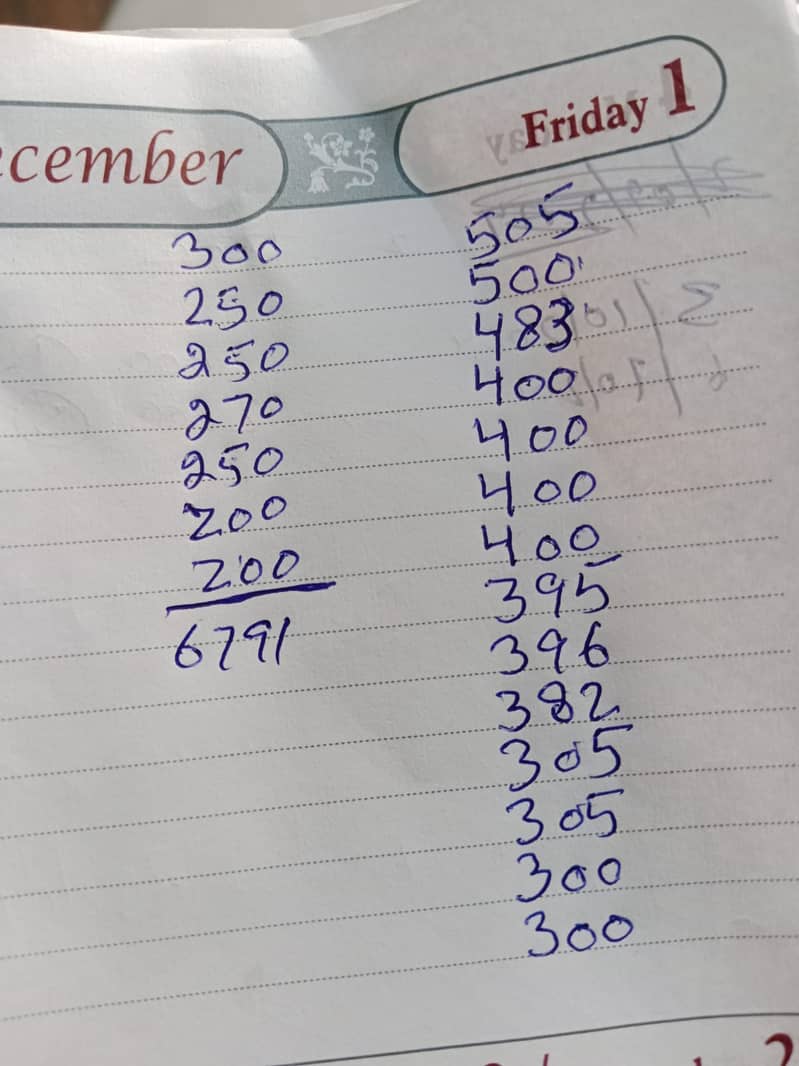 cember
Friday 1
300
250
250
270
250
200
200
6791
505
500
483
400
400
400
400
395
396
382
305
305
300
300